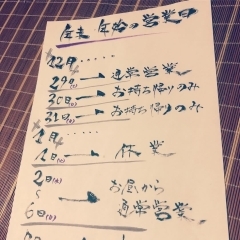 年末年始の営業日
12月‥‥‥
29日(土)→通常営業
30日(日)→お持ち帰りのみ
31日(月)→お持ち帰りのみ
1月‥‥
1日(火)→休業
2日(水)
→お昼から
通常営業
6日(日)